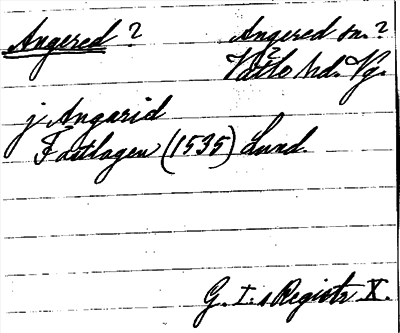 Angered ? Angered sn. ?
Vättle hd. Vg.
j Angarid
Fastlagen (1535) Lund.
G. I. s Registr X.